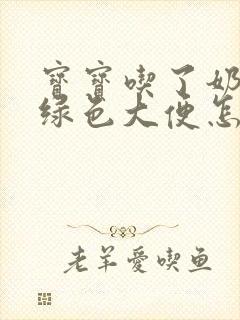 寳寳喫了奶
绿色大便怎
老羊愛喫鱼